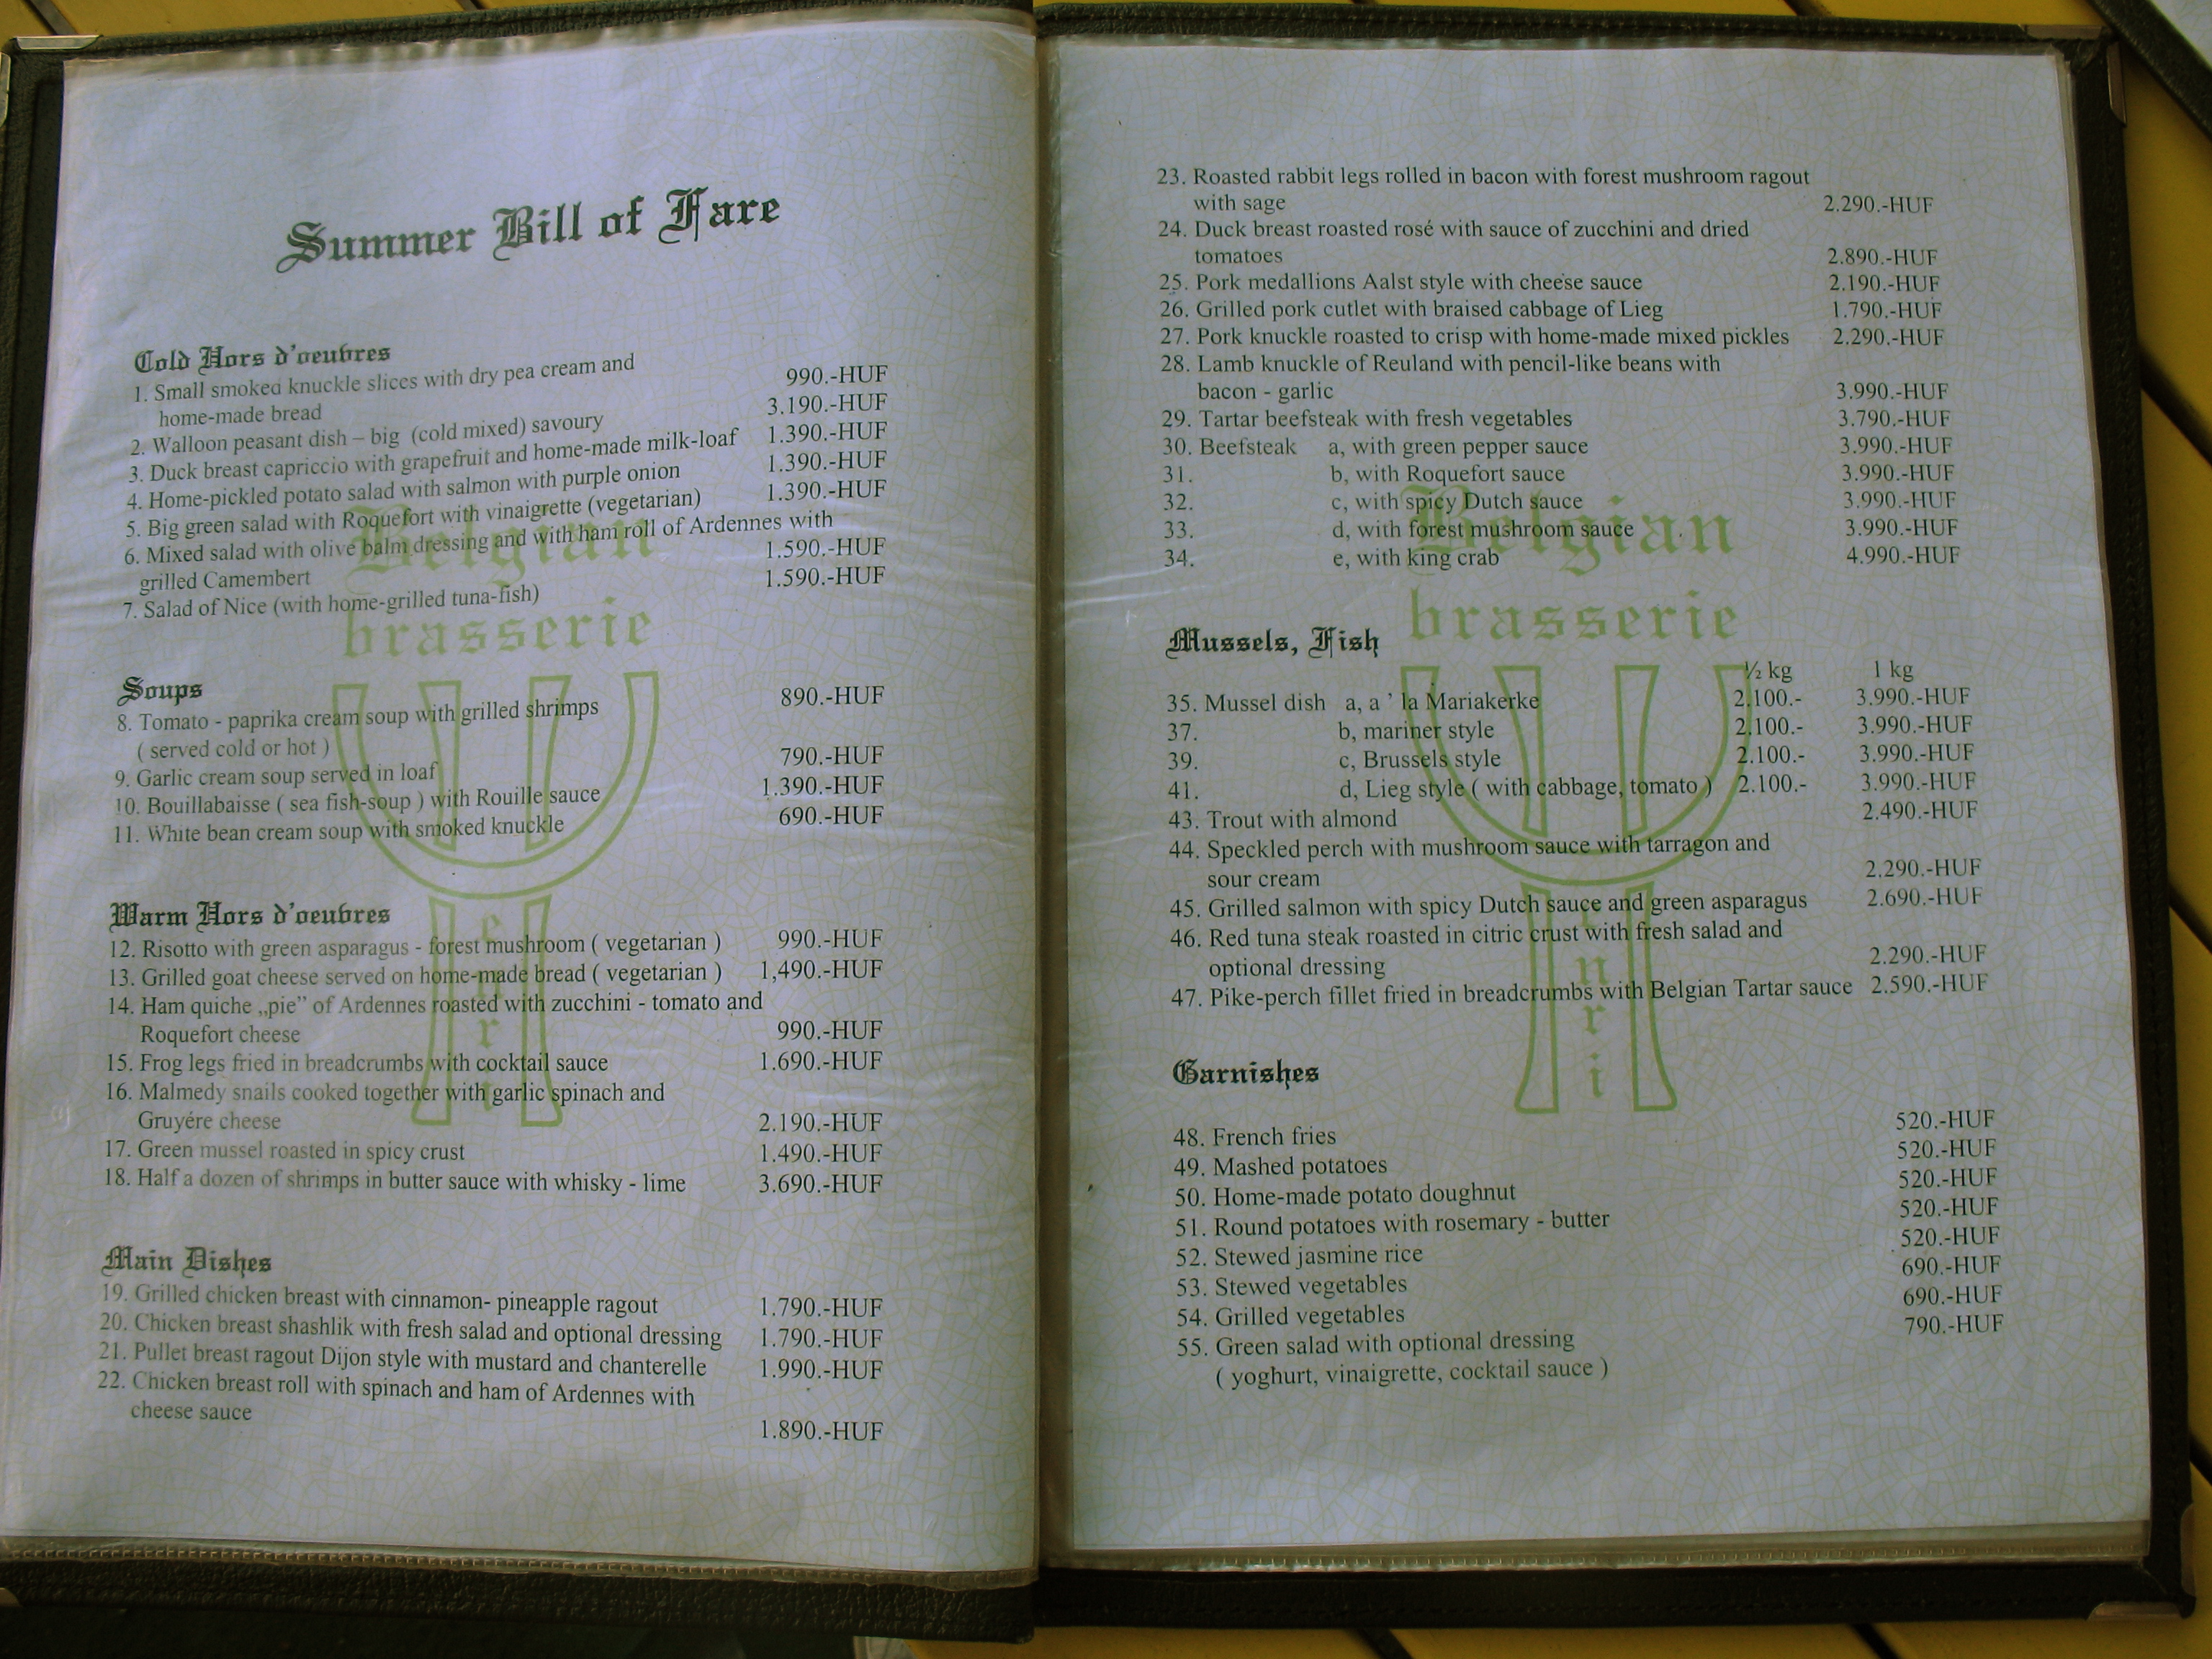 Summer Bill of Fare
Cold Hors d'oeuvres
1. Small smoked knuckle slices with dry pea cream and
home-made bread 990.-HUF
2. Walloon peasant dish – big (cold mixed) savoury 3.190.-HUF
3. Duck breast capriccio with grapefruit and home-made milk-loaf 1.390.-HUF
4. Home-pickled potato salad with salmon with purple onion 1.390.-HUF
5. Big green salad with Roquefort with vinaigrette (vegetarian) 1.390.-HUF
6. Mixed salad with olive balm dressing and with ham roll of Ardennes with
grilled Camembert 1.590.-HUF
7. Salad of Nice (with home-grilled tuna-fish) 1.590.-HUF
Belgian
brasserie
Henri
Soups
8. Tomato - paprika cream soup with grilled shrimps 890.-HUF
( served cold or hot )
9. Garlic cream soup served in loaf 790.-HUF
10. Bouillabaisse ( sea fish-soup ) with Rouille sauce 1.390.-HUF
11. White bean cream soup with smoked knuckle 690.-HUF
Warm Hors d'oeuvres
12. Risotto with green asparagus - forest mushroom ( vegetarian ) 990.-HUF
13. Grilled goat cheese served on home-made bread ( vegetarian ) 1,490.-HUF
14. Ham quiche „pie” of Ardennes roasted with zucchini - tomato and
Roquefort cheese 990.-HUF
15. Frog legs fried in breadcrumbs with cocktail sauce 1.690.-HUF
16. Malmedy snails cooked together with garlic spinach and
Gruyére cheese 2.190.-HUF
17. Green mussel roasted in spicy crust 1.490.-HUF
18. Half a dozen of shrimps in butter sauce with whisky - lime 3.690.-HUF
Main Dishes
19. Grilled chicken breast with cinnamon- pineapple ragout 1.790.-HUF
20. Chicken breast shashlik with fresh salad and optional dressing 1.790.-HUF
21. Pullet breast ragout Dijon style with mustard and chanterelle 1.990.-HUF
22. Chicken breast roll with spinach and ham of Ardennes with
cheese sauce 1.890.-HUF
23. Roasted rabbit legs rolled in bacon with forest mushroom ragout
with sage 2.290.-HUF
24. Duck breast roasted rosé with sauce of zucchini and dried
tomatoes 2.890.-HUF
25. Pork medallions Aalst style with cheese sauce 2.190.-HUF
26. Grilled pork cutlet with braised cabbage of Lieg 1.790.-HUF
27. Pork knuckle roasted to crisp with home-made mixed pickles 2.290.-HUF
28. Lamb knuckle of Reuland with pencil-like beans with
bacon - garlic 3.990.-HUF
29. Tartar beefsteak with fresh vegetables 3.790.-HUF
30. Beefsteak a, with green pepper sauce 3.990.-HUF
31. b, with Roquefort sauce 3.990.-HUF
32. c, with spicy Dutch sauce 3.990.-HUF
33. d, with forest mushroom sauce 3.990.-HUF
34. e, with king crab 4.990.-HUF
Belgian
brasserie
Henri
Mussels, Fish
½ kg 1 kg
35. Mussel dish a, a ' la Mariakerke 2.100.- 3.990.-HUF
37. b, mariner style 2.100.- 3.990.-HUF
39. c, Brussels style 2.100.- 3.990.-HUF
41. d, Lieg style ( with cabbage, tomato ) 2.100.- 3.990.-HUF
43. Trout with almond 2.490.-HUF
44. Speckled perch with mushroom sauce with tarragon and
sour cream 2.290.-HUF
45. Grilled salmon with spicy Dutch sauce and green asparagus 2.690.-HUF
46. Red tuna steak roasted in citric crust with fresh salad and
optional dressing 2.290.-HUF
47. Pike-perch fillet fried in breadcrumbs with Belgian Tartar sauce 2.590.-HUF
Garnishes
48. French fries 520.-HUF
49. Mashed potatoes 520.-HUF
50. Home-made potato doughnut 520.-HUF
51. Round potatoes with rosemary - butter 520.-HUF
52. Stewed jasmine rice 520.-HUF
53. Stewed vegetables 690.-HUF
54. Grilled vegetables 690.-HUF
55. Green salad with optional dressing 790.-HUF
( yoghurt, vinaigrette, cocktail sauce )